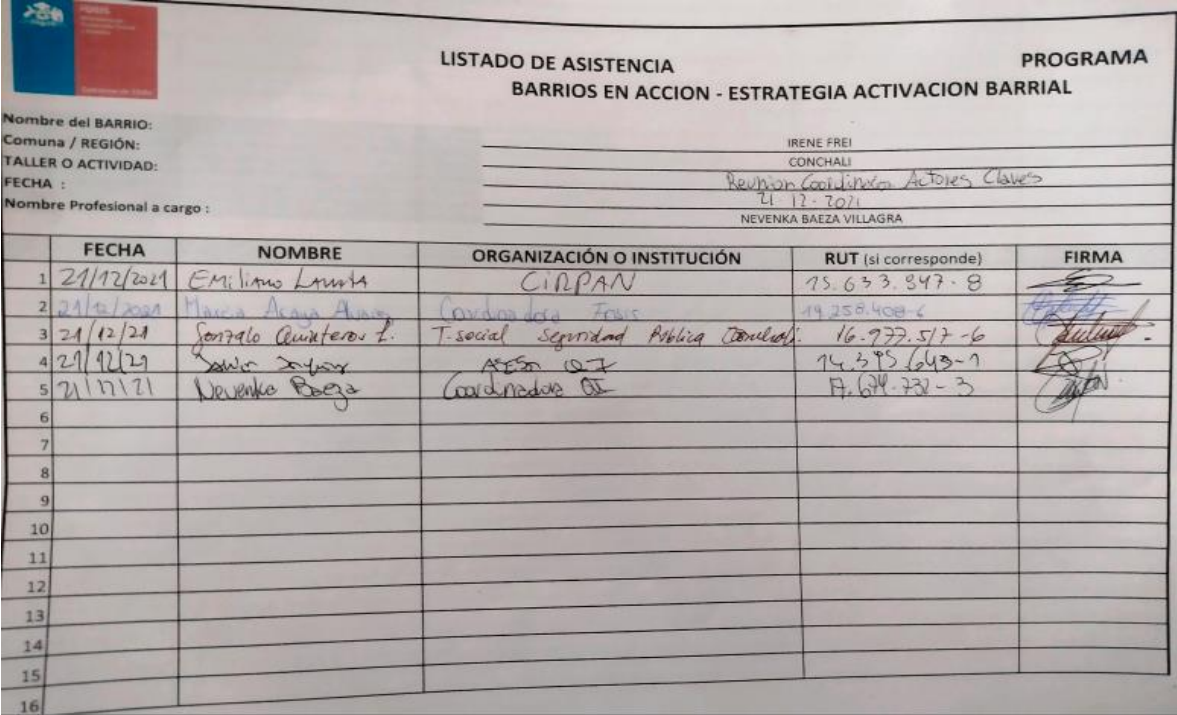 FOSIS
LISTADO DE ASISTENCIA PROGRAMA
BARRIOS EN ACCION - ESTRATEGIA ACTIVACION BARRIAL
Nombre del BARRIO: IRENE FREI
Comuna / REGIÓN: CONCHALI
TALLER O ACTIVIDAD: Reunion Actores Claves
FECHA : 21-12-2021
Nombre Profesional a cargo : NEVENKA BAEZA VILLAGRA
FECHA NOMBRE ORGANIZACIÓN O INSTITUCIÓN RUT (si corresponde) FIRMA
1 21/12/2021 EMiliano CiRPAN 15.633.947-8
2 21/12/2021 Marcia Araya Coordinadora 19.258.408-6
3 21/12/21 Gonzalo Quinteros L. T-social Seguridad Pública 16.977.517-6
4 21/12/21
5 21/12/21 Nevenka Baeza Coordinadora
6
7
8
9
10
11
12
13
14
15
16